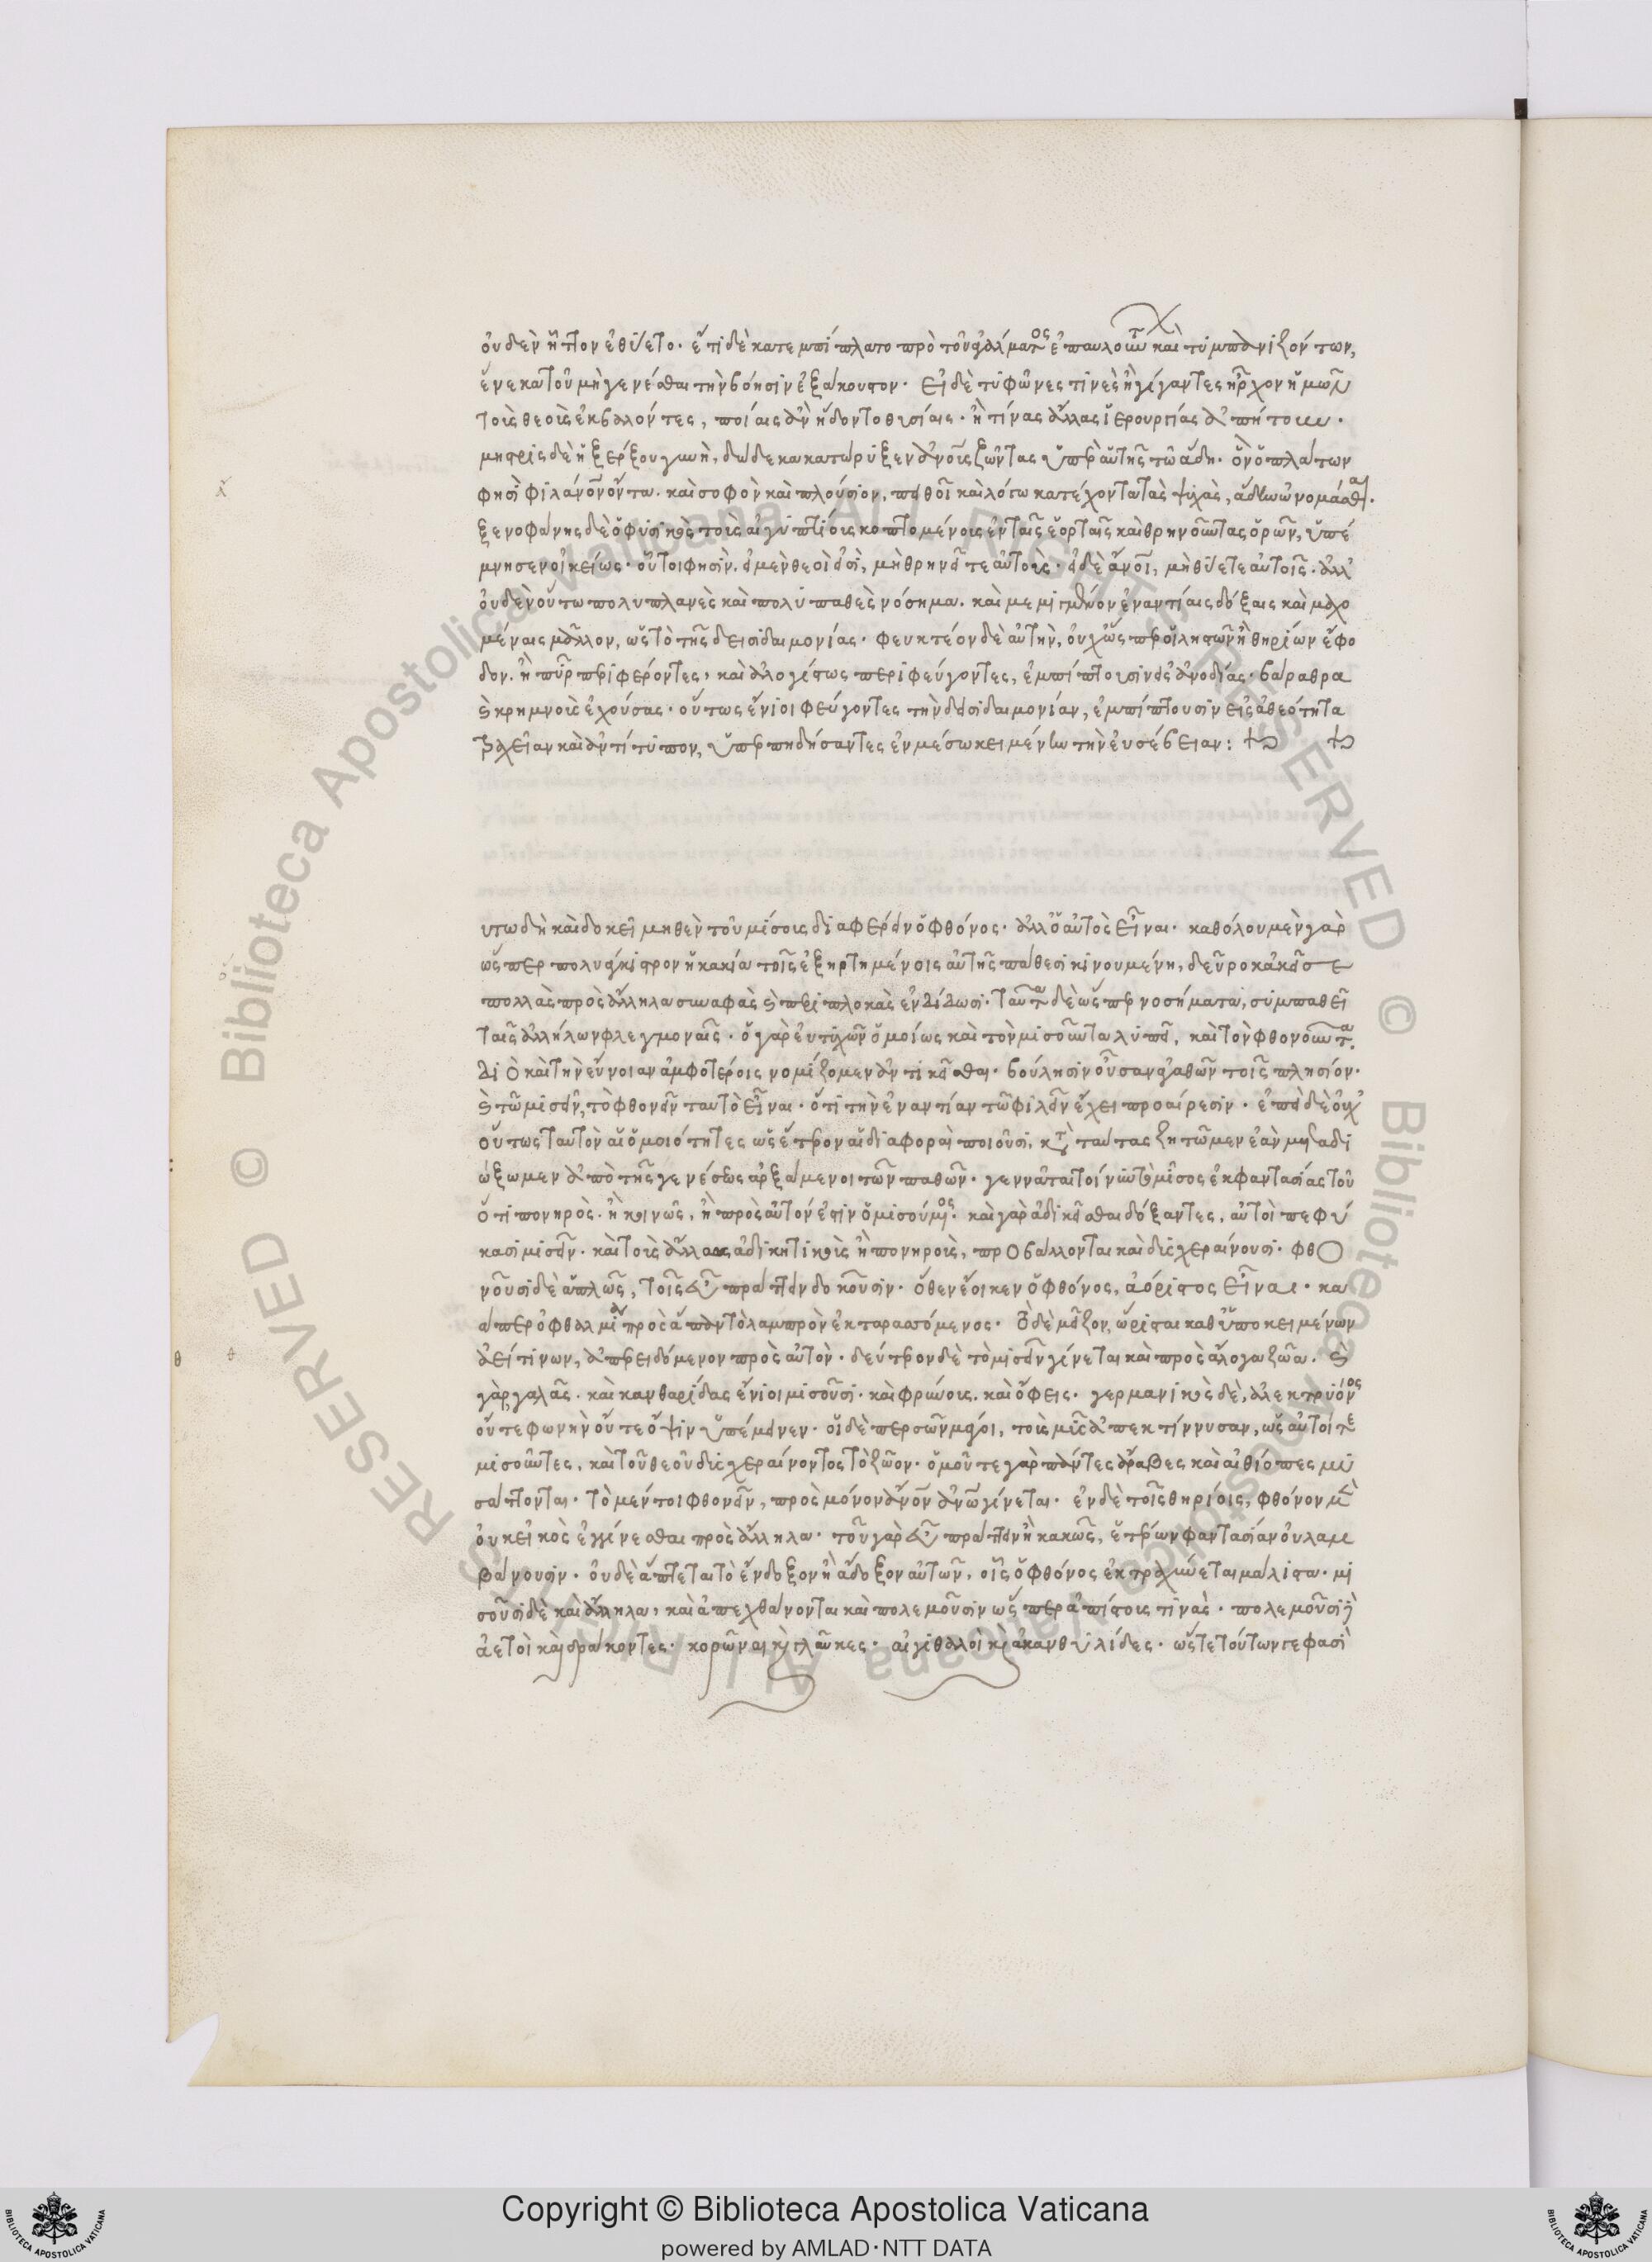 οὐδὲν ἧττον ἐθύετο· ἔτι δὲ κατεμπίπλατο πρὸ τοῦ ἀγάλματος ἐπαυλούντων καὶ τυμπανιζόντων,
ἕνεκα τοῦ μὴ γενέσθαι τὴν βόησιν ἐξάκουστον· εἰ δὲ τυφῶνες τινὲς ἢ γίγαντες ἦρχον ἡμῶν
τοὺς θεοὺς ἐκβαλόντες, ποίαις ἂν ἥδοντο θυσίαις· ἢ τίνας ἄλλας ἱερουργίας ἀπῄτουν·
μηστρις δὲ ἡ ξέρξου γυνὴ, δώδεκα κατώρυξεν ἀνους ζῶντας ὑπὲρ αὑτῆς τῶ ἅδῃ· ὃν ὁ πλάτων
φησὶ φιλάνον ὄντα. καὶ σοφὸν καὶ πλούσιον, πειθοῖ καὶ λόγω κατέχοντα τὰς ψυχὰς, ἅδην ὠνομάσθαι.
ξενοφάνης δὲ ὁ φυσικὸς τοὺς αἰγυπτίους κοπτομένους ἐν ταῖς ἑορταῖς καὶ θρηνοῦντας ὁρῶν, ὑπέ
μνησεν οἰκείως· οὗτοι φησὶν. εἰ μὲν θεοὶ εἰσὶ, μὴ θρηνεῖτε αὐτούς· εἰ δὲ ἄνοι, μὴ θύετε αὐτοῖς· ἀλλ'
οὐδὲν οὕτω πολυπλανὲς καὶ πολυπαθὲς νόσημα. καὶ μεμιγμένον ἐναντίαις δόξαις καὶ μαχο
μέναις μᾶλλον, ὡς τὸ τῆς δεισιδαιμονίας· φευκτέον δὲ αὐτὴν, οὐχ ὥσπερ οἱ ληστῶν ἢ θηρίων ἔφο
δον. ἢ πῦρ περιφέροντες, καὶ ἀλογίστως περιφεύγοντες, ἐμπίπτουσιν εἰς ἀνοδίας· βάραθρα
καὶ κρημνοὺς ἐχούσας· οὕτως ἔνιοι φεύγοντες τὴν δεισιδαιμονίαν, ἐμπίπτουσιν εἰς ἀθεότητα
τραχεῖαν καὶ ἀντίτυπον, ὑπερπηδήσαντες ἐν μέσω κειμένην τὴν εὐσέβειαν:
υτω δὴ καὶ δοκεῖ μηθὲν τοῦ μίσους διαφέρειν ὁ φθόνος· ἀλλ' ὁ αὐτὸς εἶναι· καθόλου μὲν γὰρ
ὥσπερ πολυάγκιστρον ἡ κακία τοῖς ἐξηρτημένοις αὐτῆς πάθεσι κινουμένη, δεῦρο κἀκεῖσε
πολλὰς πρὸς ἄλληλα συναφὰς καὶ περιπλοκὰς ἐνδίδωσι· ταῦτα δὲ ὥσπερ νοσήματα, συμπαθεῖ
ταῖς ἀλλήλων φλεγμοναῖς· ὁ γὰρ εὐτυχῶν ὁμοίως καὶ τὸν μισοῦντα λυπεῖ, καὶ τὸν φθονοῦντα.
διὸ καὶ τὴν εὔνοιαν ἀμφοτέροις νομίζομεν ἀντικεῖσθαι· βούλησιν οὖσαν ἀγαθῶν τοῖς πλησίον·
καὶ τῶ μισεῖν, τὸ φθονεῖν ταυτὸ εἶναι· ὅτι τὴν ἐναντίαν τῶ φιλεῖν ἔχει προαίρεσιν· ἐπεὶ δὲ οὐχ
οὕτως ταυτὸν αἱ ὁμοιότητες ὡς ἕτερον αἱ διαφοραὶ ποιοῦσι, κατὰ ταύτας ζητῶμεν ἐὰν μεταδι
ώξωμεν ἀπὸ τῆς γενέσεως ἀρξάμενοι τῶν παθῶν· γεννᾶται τοίνυν τὸ μῖσος ἐκ φαντασίας τοῦ
ὅτι πονηρὸς. ἢ κοινῶς, ἢ πρὸς αὐτόν ἐστιν ὁ μισούμενος· καὶ γὰρ ἀδικεῖσθαι δόξαντες, αὐτοὶ πεφύ
κασι μισεῖν· καὶ τοὺς ἄλλως ἀδικητικοὺς ἢ πονηροὺς, προβάλλονται καὶ δυσχεραίνουσι· φθο
νοῦσι δὲ ἁπλῶς, τοῖς εὖ πράττειν δοκοῦσιν· ὅθεν ἔοικεν ὁ φθόνος, ἀόριστος εἶναι· κα
άπερ ὀφθαλμία πρὸς ἅπαν τὸ λαμπρὸν ἐκταρασσόμενος· ὃ δὲ μεῖζον, ὥρισται καθ' ὑποκειμένων
ἀεί τινων, ἀπερειδόμενον πρὸς αὐτὸν· δεύτερον δὲ τὸ μισεῖν γίνεται καὶ πρὸς ἄλογα ζῶα. καὶ
γὰρ γαλᾶς. καὶ κανθαρίδας ἔνιοι μισοῦσι· καὶ φρύνους. καὶ ὄφεις· γερμανικὸς δὲ, ἀλεκτρυόνος
οὔτε φωνὴν οὔτε ὄψιν ὑπέμεινεν· οἱ δὲ περσῶν μάγοι, τοὺς μῦς ἀπεκτίννυσαν, ὡς αὐτοί τε
μισοῦντες, καὶ τοῦ θεοῦ δυσχεραίνοντος τὸ ζῶον· ὁμοῦ τε γὰρ πάντες ἄραβες καὶ αἰθίοπες μυ
σάττονται· τὸ μέν τοι φθονεῖν, πρὸς μόνον ἄνον ἀνω γίνεται· ἐν δὲ τοῖς θηρίοις, φθόνον μὲν
οὐκ εἰκὸς ἐγγίνεσθαι πρὸς ἄλληλα· τοῦ γὰρ εὖ πράττειν ἢ κακῶς, ἕτερων φαντασίαν οὐ λαμ
βάνουσιν· οὐδὲ ἅπτεται τὸ ἔνδοξον ἢ ἄδοξον αὐτῶν, οἷς ὁ φθόνος ἐκτραχύνεται μάλιστα· μι
σοῦσι δὲ καὶ ἄλληλα, καὶ ἀπεχθάνονται καὶ πολεμοῦσιν ὥσπερ ἀπίστους τινὰς· πολεμοῦσι
ἀετοὶ καὶ δράκοντες· κορῶναι καὶ γλαῦκες· αἰγιθαλοὶ καὶ ἀκανθυλίδες· ὥστε τούτων γε φασὶ